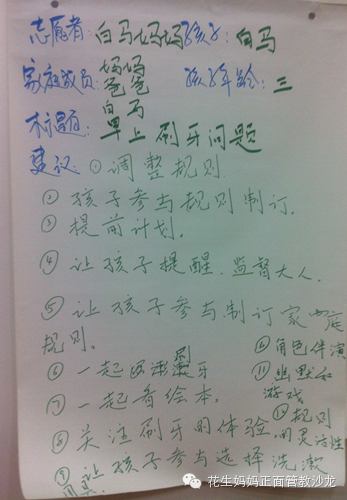 志愿者：白马妈妈 孩子：白马
家庭成员：妈妈 爸爸 白马 孩子年龄：三
标题：早上刷牙问题
建议：①调整规则
②孩子参与规则制订.
③提前计划.
④让孩子提醒.监督大人.
⑤让孩子参与制订家庭规则.
⑥一起 刷牙
⑦一起看绘本.
⑧关注刷牙的体验.
⑨让孩子参与选择洗漱用具.
角色伴演
⑪幽默和游戏
⑫规则的灵活性
花生妈妈正面管教沙龙